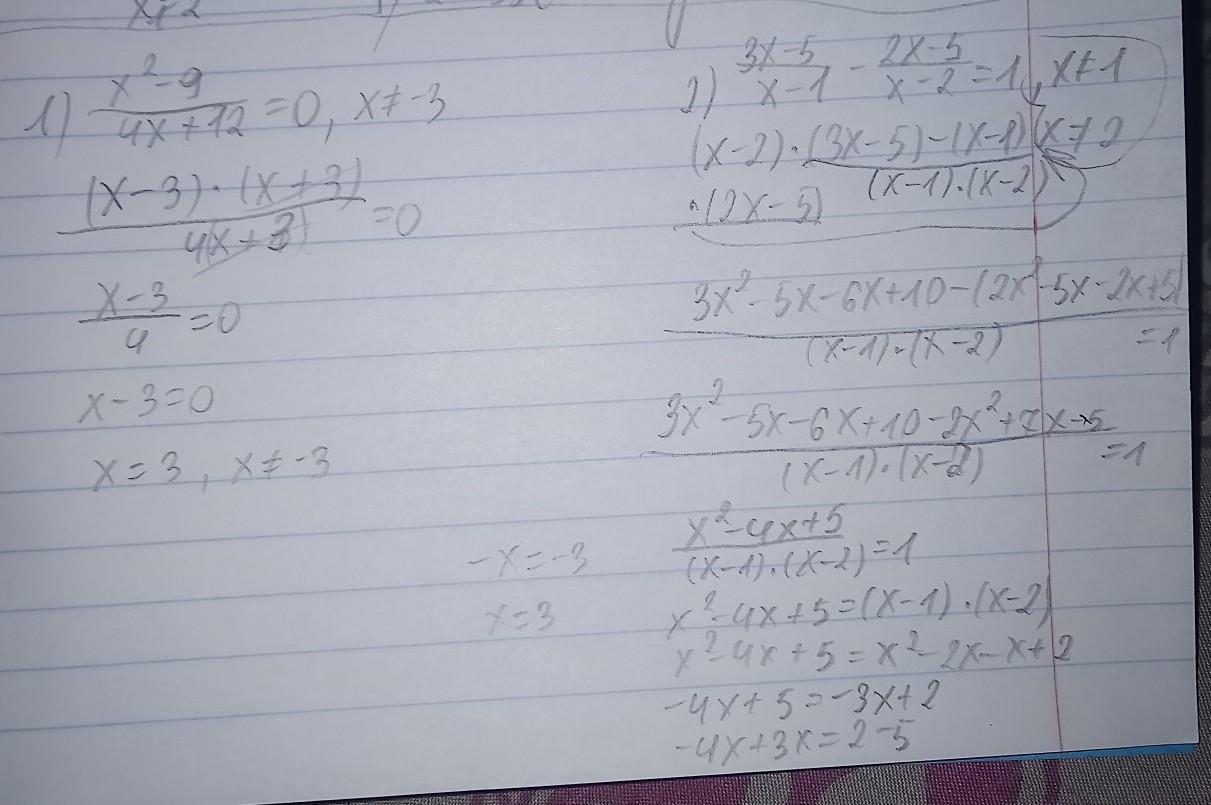 1) \frac{x^2-9}{4x+12}=0, x≠-3
\frac{(x-3)·(x+3)}{4(x+3)}=0
\frac{x-3}{4}=0
x-3=0
x=3, x≠-3
2) \frac{3x-5}{x-1}-\frac{2x-5}{x-2}=1, x≠1
x≠2
\frac{(x-2)·(3x-5)-(x-1)
·(2x-5)}{(x-1)·(x-2)}
\frac{3x^2-5x-6x+10-(2x^2-5x-2x+5)}{(x-1)·(x-2)}=1
\frac{3x^2-5x-6x+10-2x^2+7x-5}{(x-1)·(x-2)}=1
\frac{x^2-4x+5}{(x-1)·(x-2)}=1
x^2-4x+5=(x-1)·(x-2)
x^2-4x+5=x^2-2x-x+2
-4x+5=-3x+2
-4x+3x=2-5
-x=-3
x=3